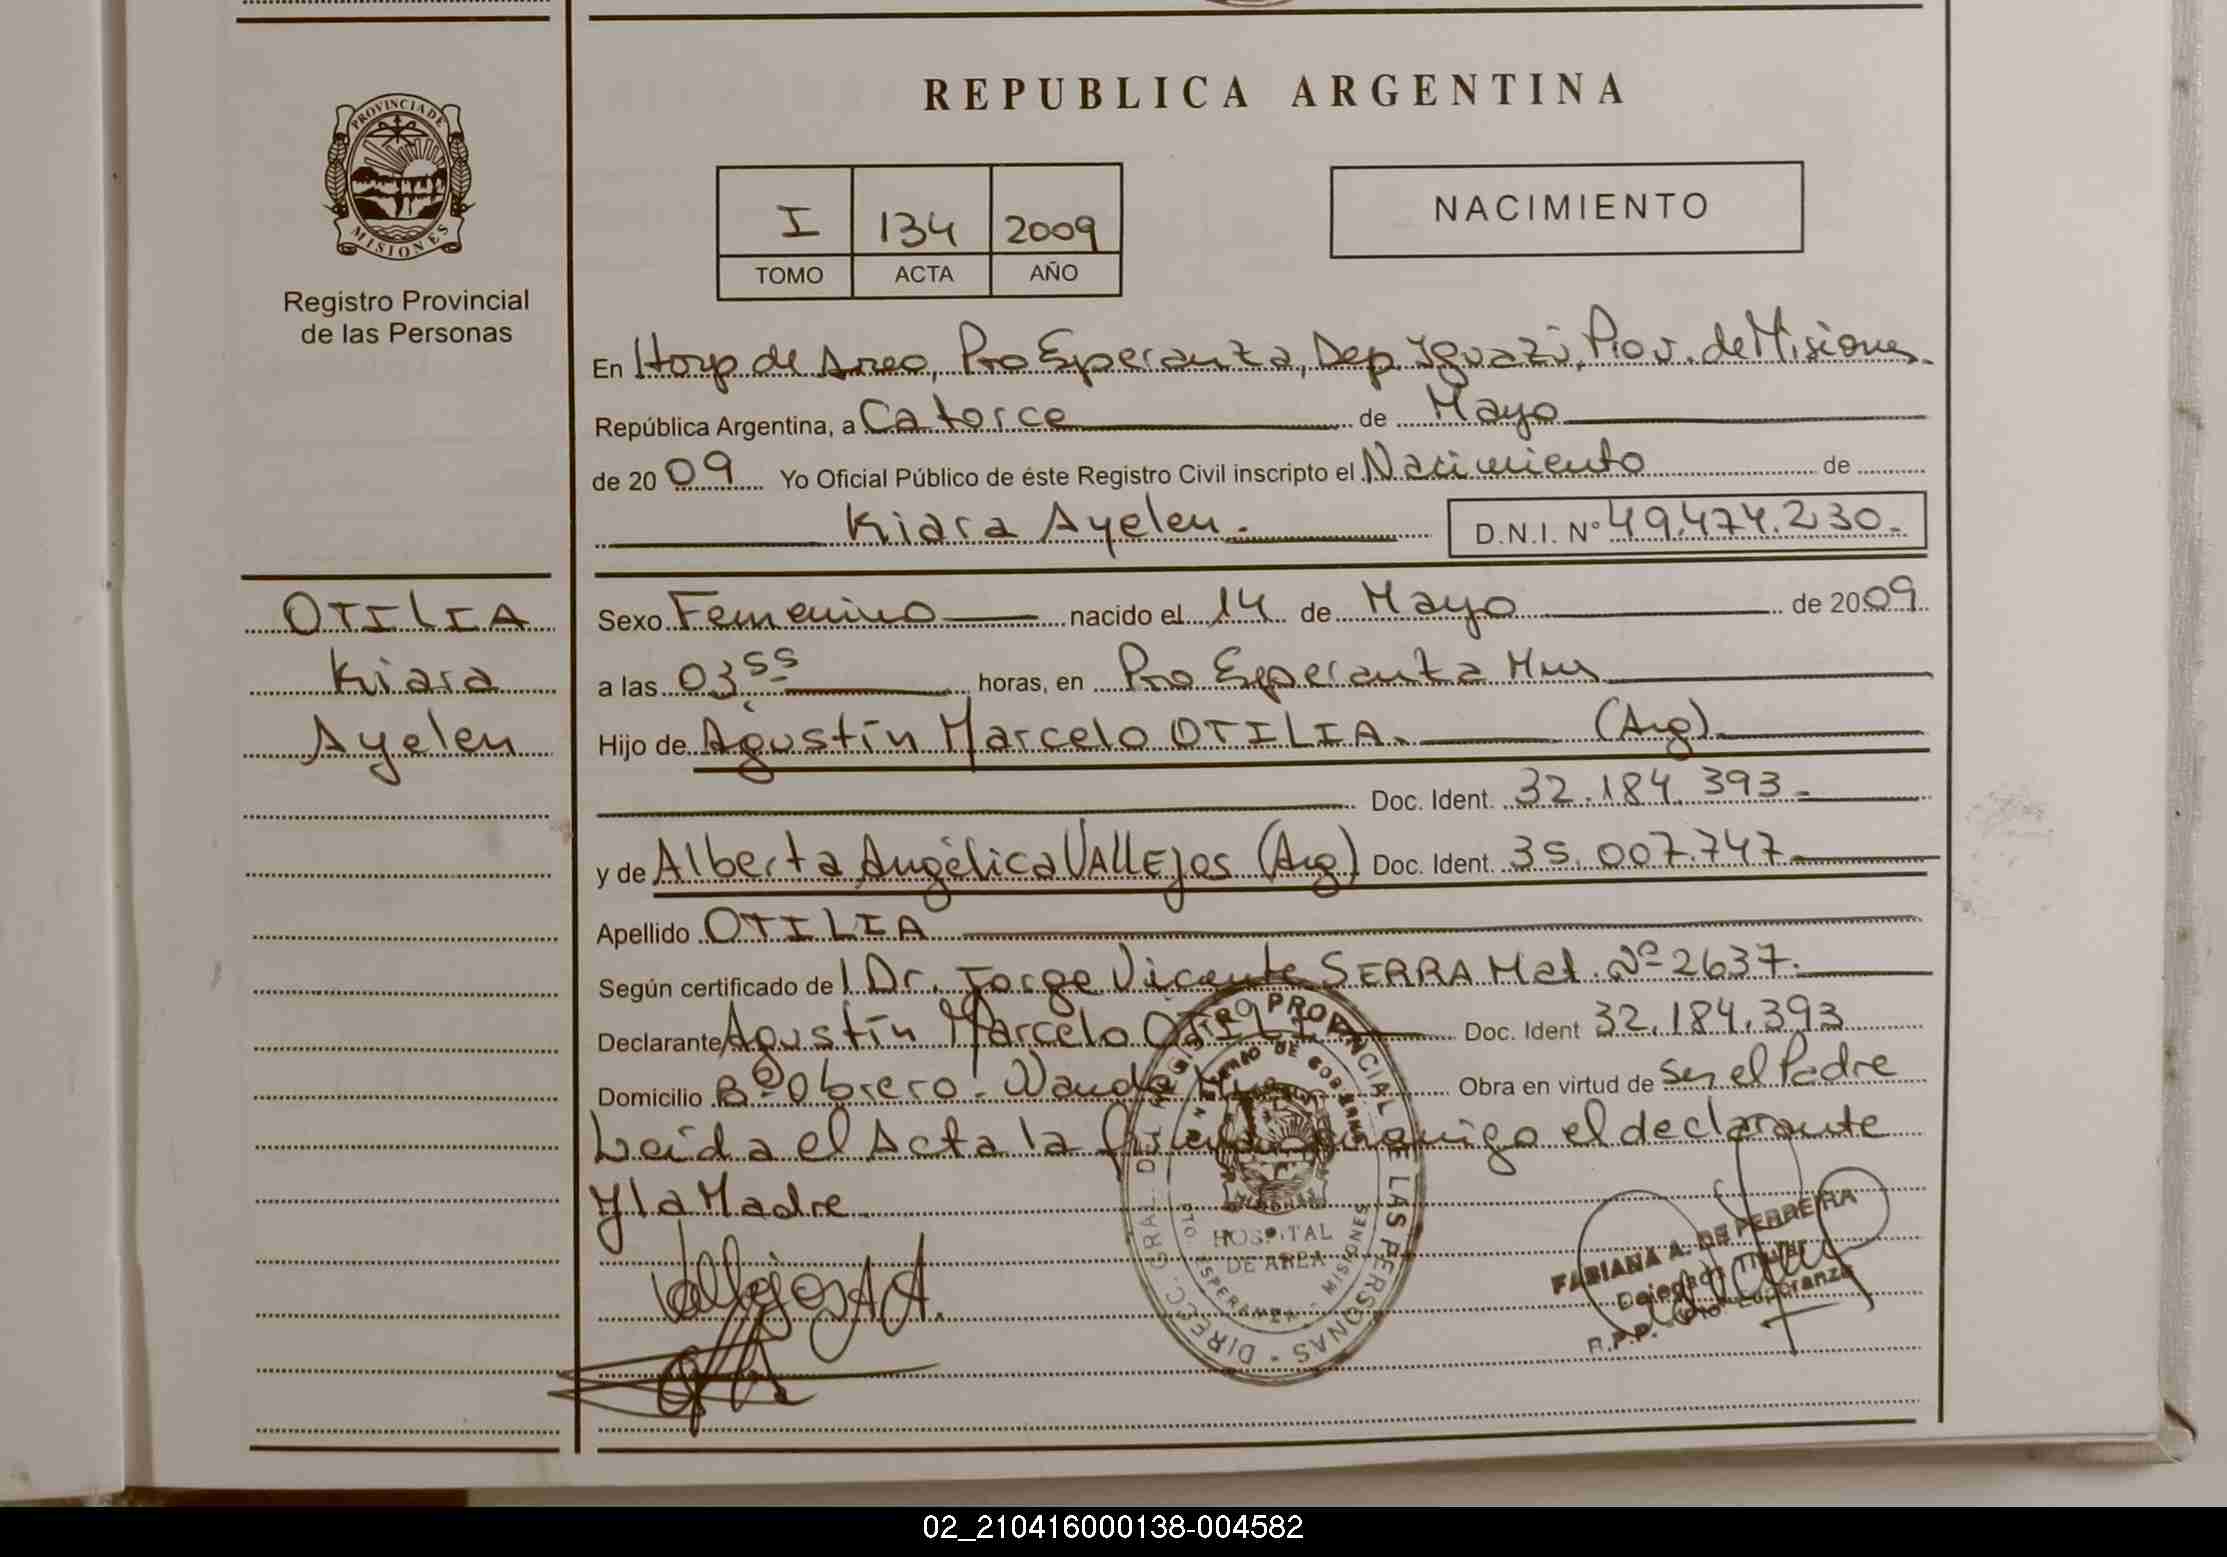 REPUBLICA ARGENTINA
PROVINCIA DE
MISIONES
Registro Provincial
de las Personas
I 134 2009
TOMO ACTA AÑO
NACIMIENTO
En Hosp de Area, Pto Esperanza, Dep. Iguazú, Prov. de Misiones.
República Argentina, a Catorce de Mayo
de 2009 Yo Oficial Público de éste Registro Civil inscripto el Nacimiento de
Kiara Ayelen.
D.N.I. Nº 49.474.230.-
OTILIA
Kiara
Ayelen
Sexo Femenino nacido el 14 de Mayo de 2009
a las 03 55 horas, en Pto Esperanza Mnes
Hijo de Agustín Marcelo OTILIA. (Arg).
Doc. Ident. 32.184.393.-
y de Alberta Angélica VALLEJOS (Arg) Doc. Ident. 35.007.747.
Apellido OTILIA
Según certificado del Dr. Jorge Vicente SERRA Mat. Nº 2637.
Declarante Agustín Marcelo OTILIA Doc. Ident 32.184.393
Domicilio Bº Obrero. Wanda Obra en virtud de Ser el Padre
Leida el Acta la conmigo el declarante
y la Madre
Vallejos A A.
DIRECC. GRAL. DEL REGISTRO PROVINCIAL DE LAS PERSONAS
MINISTERIO DE GOBIERNO
MISIONES
HOSPITAL
DE AREA
PTO ESPERANZA - MISIONES
FABIANA A. DE FERREIRA
Delegada Titular
R.P.P. Pto Esperanza
02_210416000138-004582